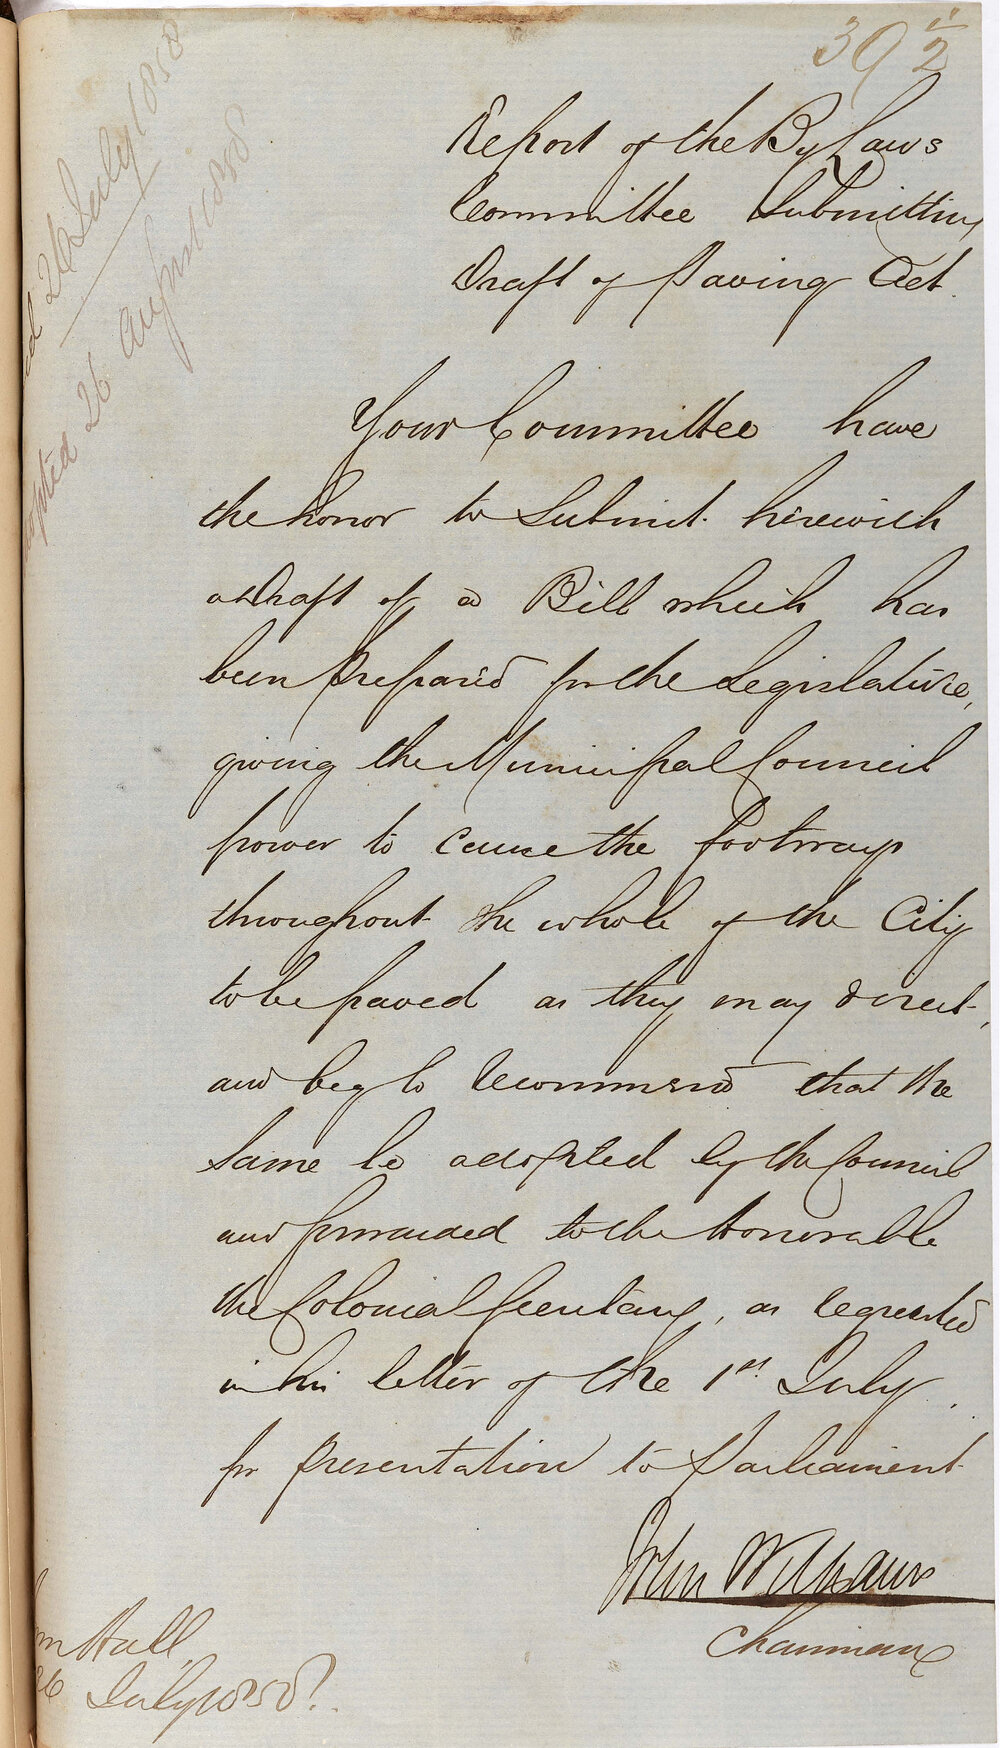 39 11/2
Report of the By Laws
Committee Submitting
Draft of Paving Act.
26 July 1858
adopted 26 August 1858
Your Committee have
the honor to Submit herewith
a Draft of a Bill which has
been prepared for the Legislature,
giving the Municipal Council
power to cause the footways
throughout the whole of the City
to be paved as they may direct,
and beg to recommend that the
Same be adopted by the Council
and forwarded to the Honorable
the Colonial Secretary, as requested
in his letter of the 1st July,
for presentation to Parliament
John Williams
Chairman
Hall,
26 July 1858.